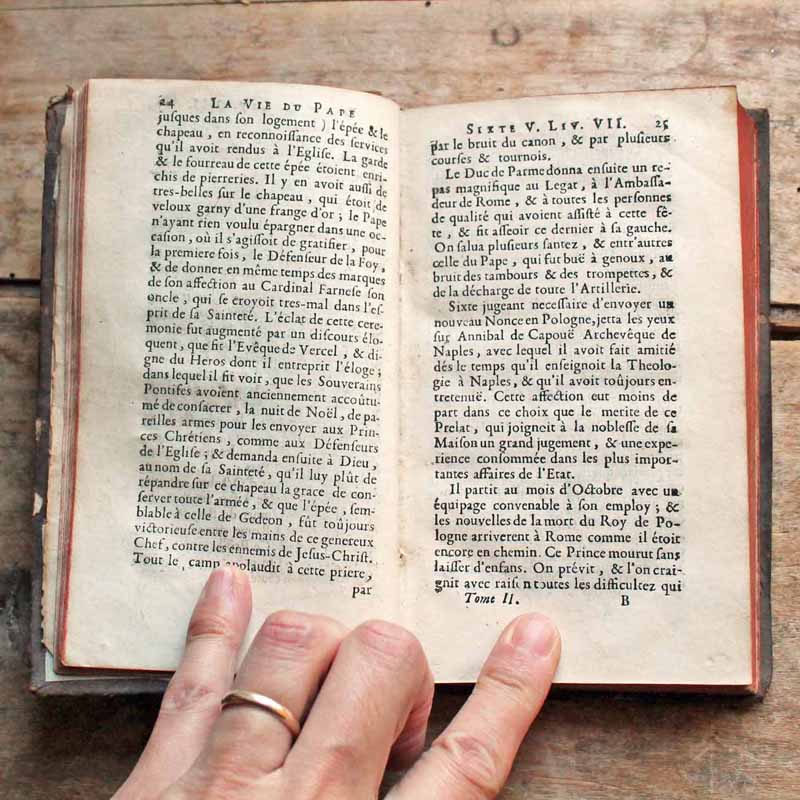 24 LA VIE DU PAPE
juſques dans ſon logement ) l'épée & le
chapeau , en reconnoiſſance des ſervices
qu'il avoit rendus à l'Egliſe. La garde
& le fourreau de cette épée étoient enri-
chis de pierreries. Il y en avoit auſſi de
tres-belles ſur le chapeau , qui étoit de
veloux garny d'une frange d'or ; le Pape
n'ayant rien voulu épargner dans une oc-
caſion, où il s'agiſſoit de gratifier, pour
la premiere fois, le Défenſeur de la Foy,
& de donner en même temps des marques
de ſon affection au Cardinal Farneſe ſon
oncle, qui ſe croyoit tres-mal dans l'eſ-
prit de ſa Sainteté. L'éclat de cette cere-
monie fut augmenté par un diſcours élo-
quent, que fit l'Evêque de Vercel , & di-
gne du Heros dont il entreprit l'éloge ;
dans lequel il fit voir, que les Souverains
Pontifes avoient anciennement accoûtu-
mé de conſacrer, la nuit de Noël, de pa-
reilles armes pour les envoyer aux Prin-
ces Chrétiens , comme aux Défenſeurs
de l'Egliſe ; & demanda enſuite à Dieu,
au nom de ſa Sainteté, qu'il luy plût de
répandre ſur ce chapeau la grace de con-
ſerver toute l'armée, & que l'épée , ſem-
blable à celle de Gedeon , fût toûjours
victorieuse entre les mains de ce genereux
Chef, contre les ennemis de Jeſus-Chriſt.
Tout le camp applaudit à cette priere,
par
SIXTE V. LIV. VII. 25
par le bruit du canon , & par pluſieurs
courſes & tournois.
Le Duc de Parme donna enſuite un re-
pas magnifique au Legat, à l'Ambaſſa-
deur de Rome , & à toutes les perſonnes
de qualité qui avoient aſſiſté à cette fê-
te , & fit aſſeoir ce dernier à ſa gauche.
On ſalua pluſieurs ſantez , & entr'autres
celle du Pape , qui fut buë à genoux , au
bruit des tambours & des trompettes, &
de la décharge de toute l'Artillerie.
Sixte jugeant neceſſaire d'envoyer un
nouveau Nonce en Pologne, jetta les yeux
ſur Annibal de Capouë Archevêque de
Naples, avec lequel il avoit fait amitié
dés le temps qu'il enſeignoit la Theolo-
gie à Naples, & qu'il avoit toûjours en-
tretenuë. Cette affection eut moins de
part dans ce choix que le merite de ce
Prelat, qui joignoit à la nobleſſe de ſa
Maiſon un grand jugement, & une expe-
rience conſommée dans les plus impor-
tantes affaires de l'Etat.
Il partit au mois d'Octobre avec un
équipage convenable à ſon employ ; &
les nouvelles de la mort du Roy de Po-
logne arriverent à Rome comme il étoit
encore en chemin. Ce Prince mourut ſans
laiſſer d'enfans. On prévit , & l'on crai-
gnit avec raiſon toutes les difficultez qui
Tome II. B